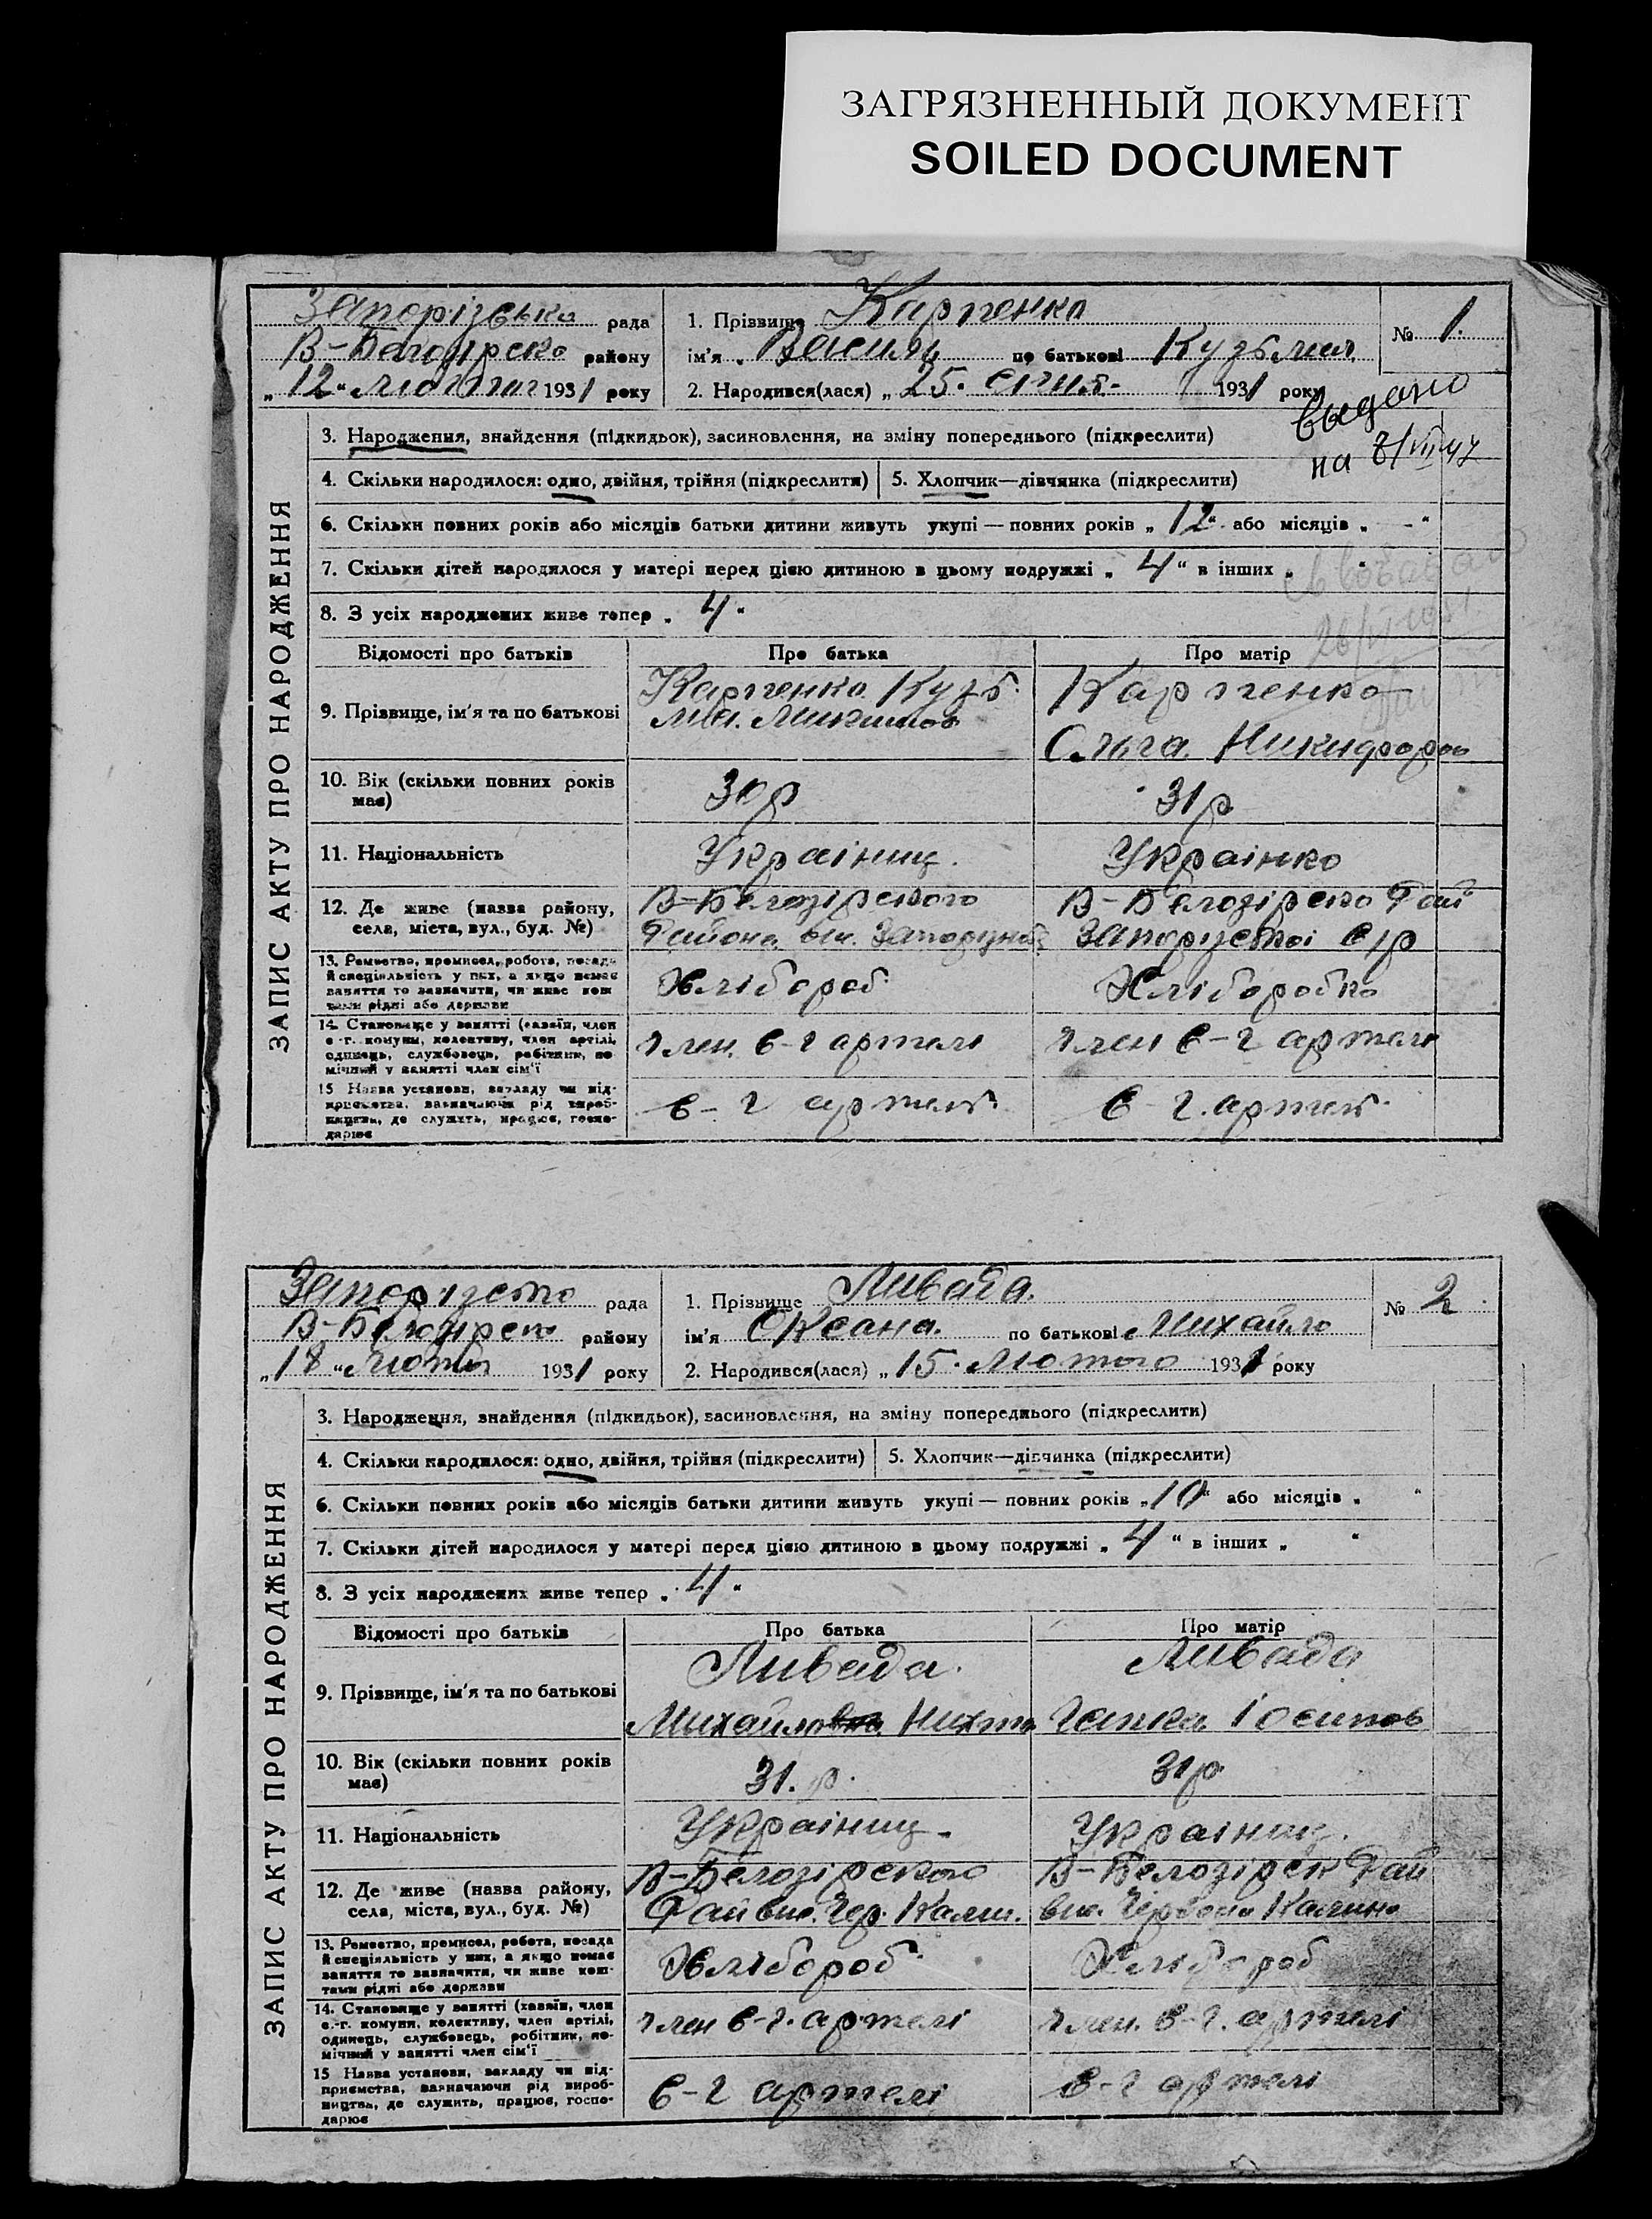 ЗАГРЯЗНЕННЫЙ ДОКУМЕНТ
SOILED DOCUMENT
Запорізська рада
В-Білозірсько району
„12“ 1931 року
1. Прізвище Карпенко
ім'я Василь по батькові Кузьмич
2. Народився(лася) „25. січня 1931 року
№ 1.
выдано
на 8/VII 47
ЗАПИС АКТУ ПРО НАРОДЖЕННЯ
3. Народження, знайдення (підкидьок), засиновлення, на зміну попереднього (підкреслити)
4. Скільки народилося: одно, двійня, трійня (підкреслити)
5. Хлопчик—дівчинка (підкреслити)
6. Скільки повних років або місяців батьки дитини живуть укупі — повних років „12“ або місяців „-“
7. Скільки дітей народилося у матері перед цією дитиною в цьому подружжі „4“ в інших „
8. З усіх народжених живе тепер „4“
Відомості про батьків Про батька Про матір
9. Прізвище, ім'я та по батькові
Карпенко Кузь
ма.
Карпенко
Ольга Никифоров
10. Вік (скільки повних років має)
30 р
31 р
11. Національність
Україниц.
Українко
12. Де живе (назва району, села, міста, вул., буд. №)
В-Білозірського
Района
В-Білозірско Рай
Запорізської с/р
13. Ремество, промисел, робота, посада й спеціяльність у них, а якщо немає заняття то зазначити, чи живе коштами рідні або держави
Хлібороб
Хліборобка
14. Становище у занятті (хазяїн, член с.-г. комуни, колективу, член артілі, одинець, службовець, робітник, помічний у занятті член сім'ї
член с-г артелі
член с-г артелі
15 Назва установи, закладу чи підприємства, зазначаючи рід виробництва, де служить, працює, господарює
с-г артель
с-г. артель
Запорізсько рада
В-Білозірсько району
„18“ Лютого 1931 року
1. Прізвище Ливада.
ім'я Оксана. по батькові Михайло
2. Народився(лася) „15. Лютого 1931 року
№ 2
ЗАПИС АКТУ ПРО НАРОДЖЕННЯ
3. Народження, знайдення (підкидьок), засиновлення, на зміну попереднього (підкреслити)
4. Скільки народилося: одно, двійня, трійня (підкреслити)
5. Хлопчик—дівчинка (підкреслити)
6. Скільки повних років або місяців батьки дитини живуть укупі — повних років „10“ або місяців „ “
7. Скільки дітей народилося у матері перед цією дитиною в цьому подружжі „4“ в інших „ “
8. З усіх народжених живе тепер „4“
Відомості про батьків Про батька Про матір
9. Прізвище, ім'я та по батькові
Ливада.
Михайло
Ливада
Йосипов
10. Вік (скільки повних років має)
31. р.
31 р
11. Національність
Україниц.
Україниц.
12. Де живе (назва району, села, міста, вул., буд. №)
В-Белозірского
Рай вис. Чер. Калин.
В-Белозірск Рай
вис. Червона Калина
13. Ремество, промисел, робота, посада й спеціяльність у них, а якщо немає заняття то зазначити, чи живе коштами рідні або держави
Хлібороб
Хлібороб
14. Становище у занятті (хазяїн, член с.-г. комуни, колективу, член артілі, одинець, службовець, робітник, помічний у занятті член сім'ї
член с-г. артелі
член. с-г. артелі
15 Назва установи, закладу чи підприємства, зазначаючи рід виробництва, де служить, працює, господарює
с-г артелі
с-г артелі